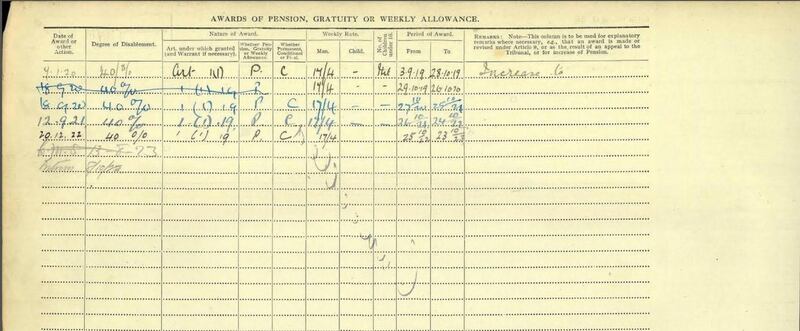 AWARDS OF PENSION, GRATUITY OR WEEKLY ALLOWANCE.
Date of Award or other Action. Degree of Disablement. Nature of Award. Weekly Rate. No. of Children under 16. Period of Award. REMARKS: Note—This column is to be used for explanatory remarks where necessary, e.g., that an award is made or revised under Article 9, or as the result of an appeal to the Tribunal, or for increase of Pension.
Art. under which granted (and Warrant if necessary). Whether Pension, Gratuity or Weekly Allowance. Whether Permanent, Conditional or Final. Man. Child. From To
1.20 40 % Art 1(1) P. C 17/4 - Nil 3.9.19 28.10.19 Increase
18.9.20 40% 1 (1) 19 P 17/4 - - 29.10.19 26.10.20
18.9.20 40% 1 (1) 19 P C 17/4 - - 27 10/20 25 10/21
12.9.21 40% 1 (1) 19. P C 17/4 - - 26 10/21 24 10/22
20.12.22 40 % 1 (1) 19 P C 17/4 25 10/22 23 10/23